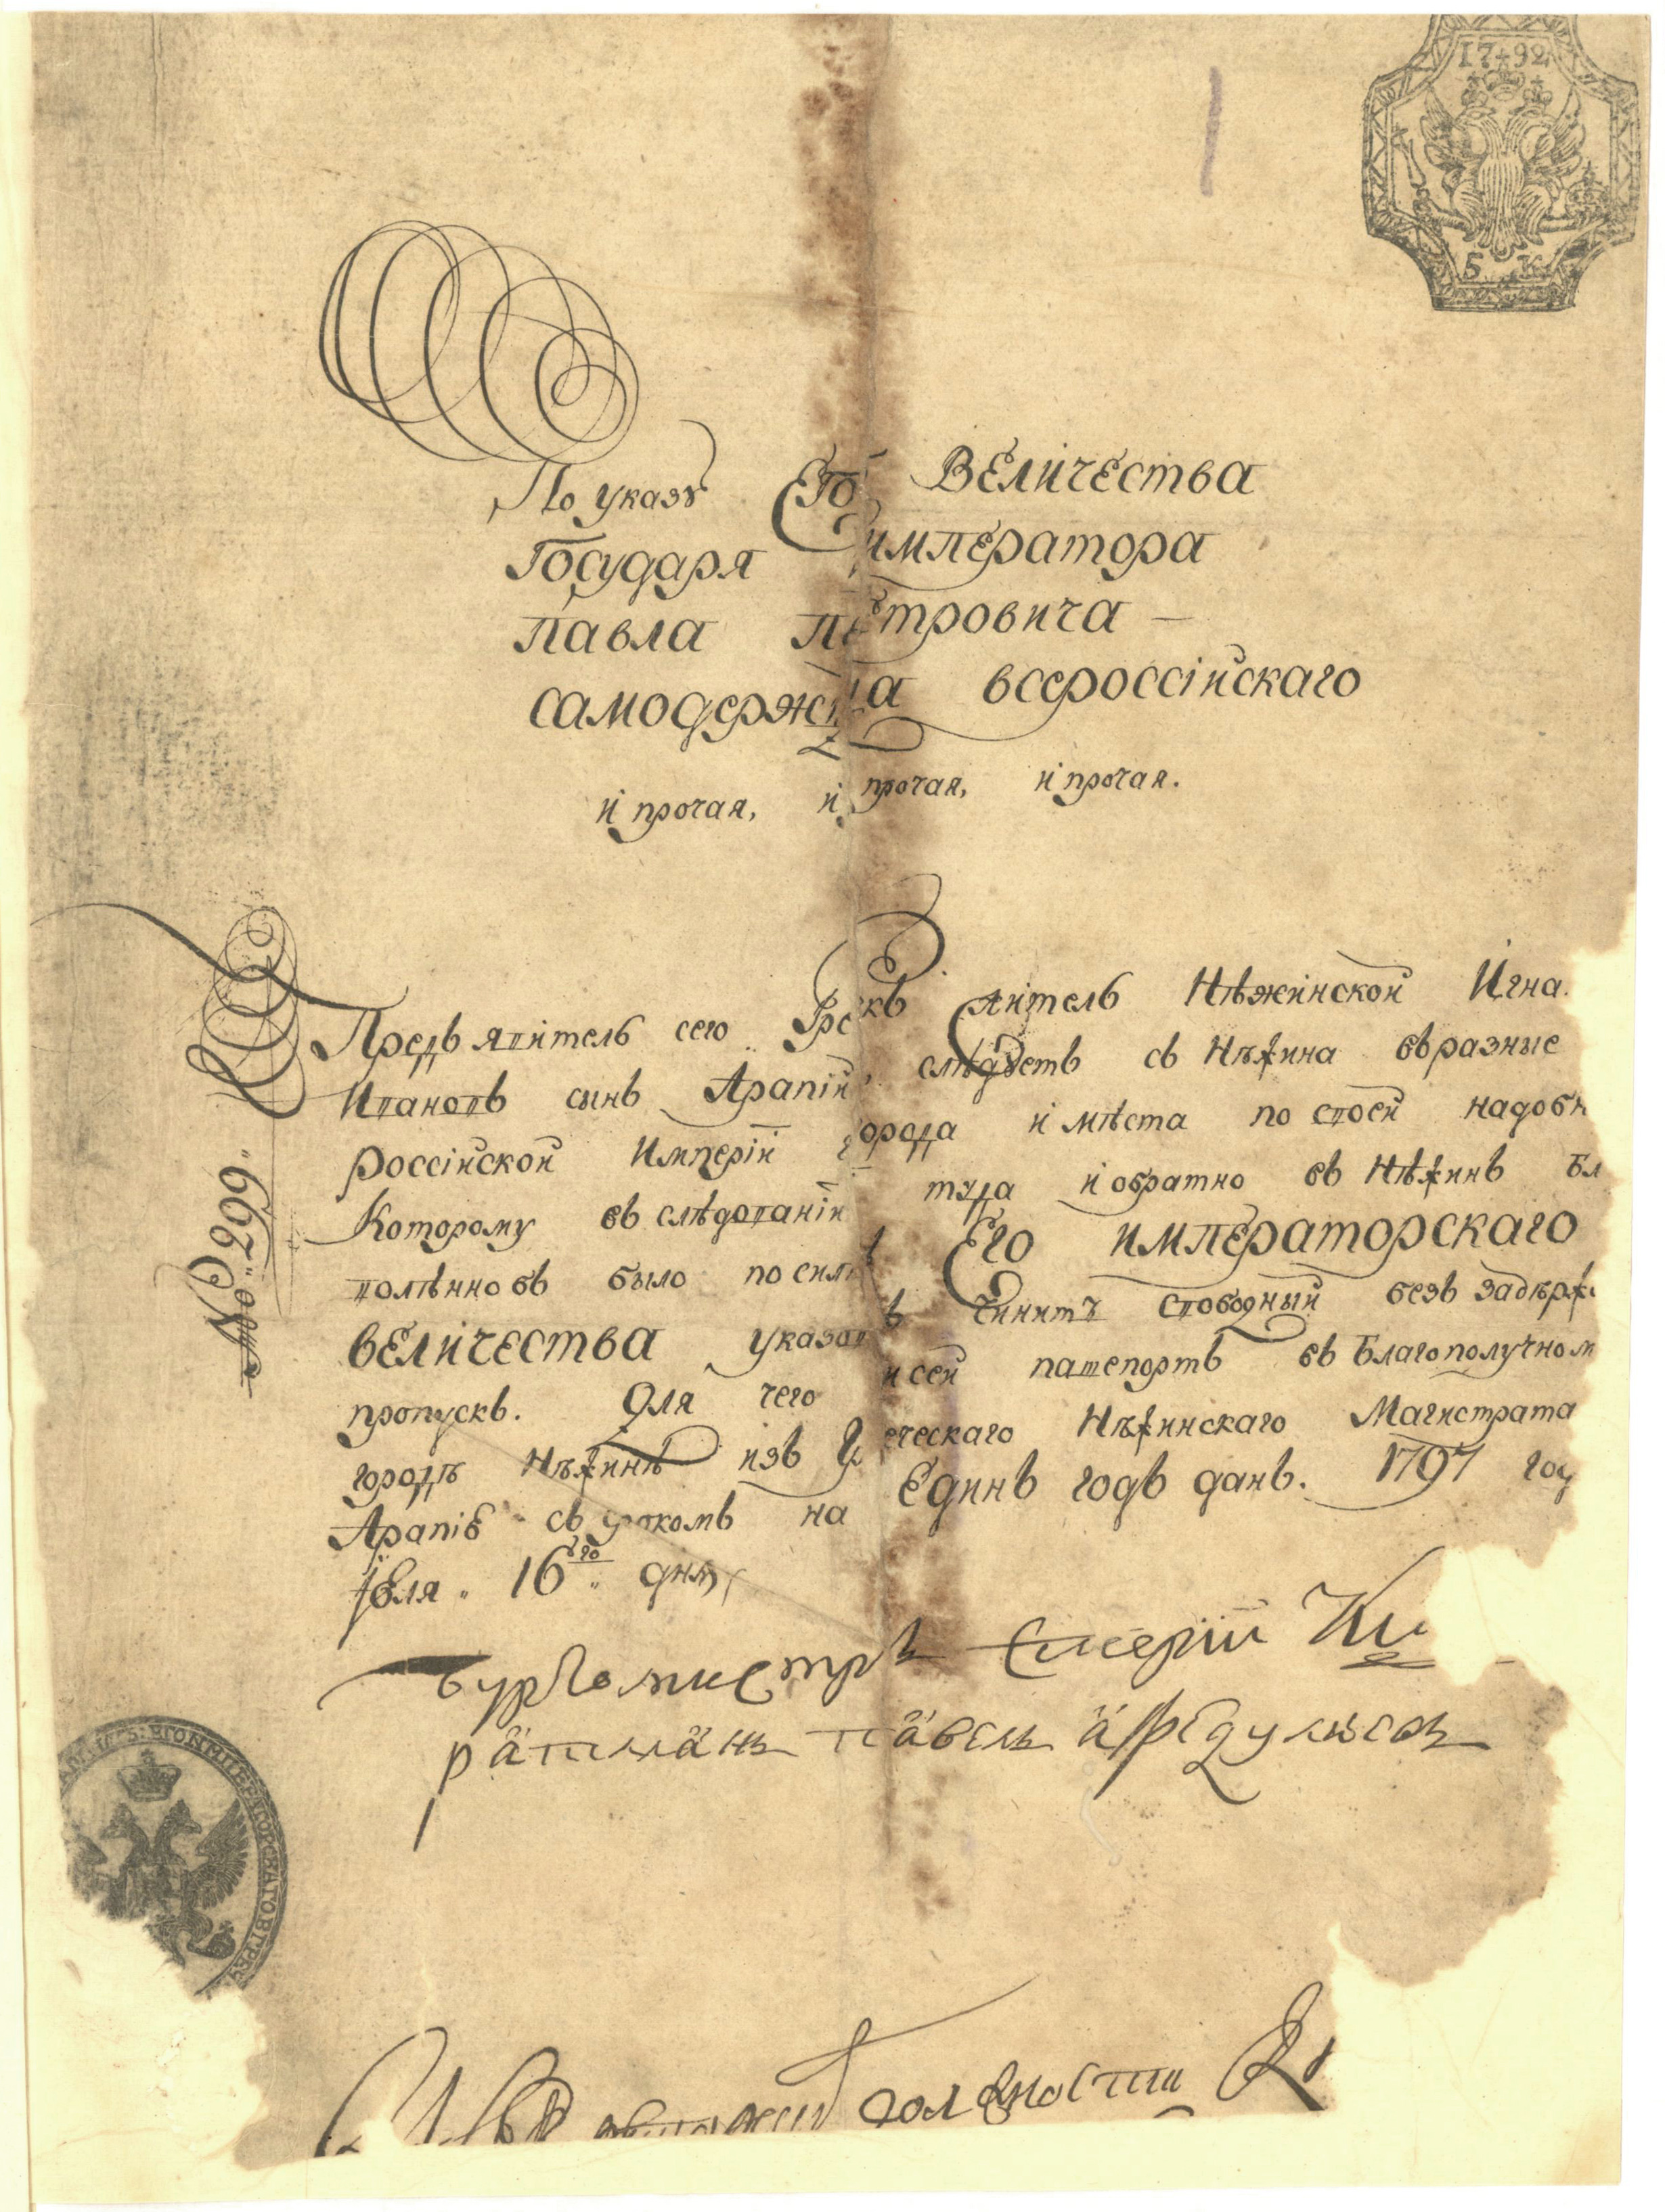 17 92
Б К
По указу Его Величества
Государя императора
Павла Петровича —
самодержца всероссійскаго
и прочая, и прочая, и прочая.
No „ 299 „
Предъявитель сего Грекъ житель Нѣжинской Игна
Ивановъ сынъ Арапій, слѣдуетъ съ Нѣжина въ разные
Россійской Имперіи города и мѣста по своей надобн
Которому въ слѣдованіи туда и обратно въ Нѣжинъ Бл
волѣнно бъ было по силѣ Его императорскаго
величества указовъ чинить свободный безъ задѣрж
пропускъ. Для чего и сей пашепортъ въ Благополучном
городѣ Нѣжинѣ изъ Греческаго Нѣжинскаго Магистрата
Арапію съ срокомъ на Единъ годъ данъ. 1797 год
Іюля „ 16го „ дня
Бургомистръ Ки
ратманъ павелъ
ЕГО ИМПЕРАТОРСКАГО В ГРЕЧ
должности